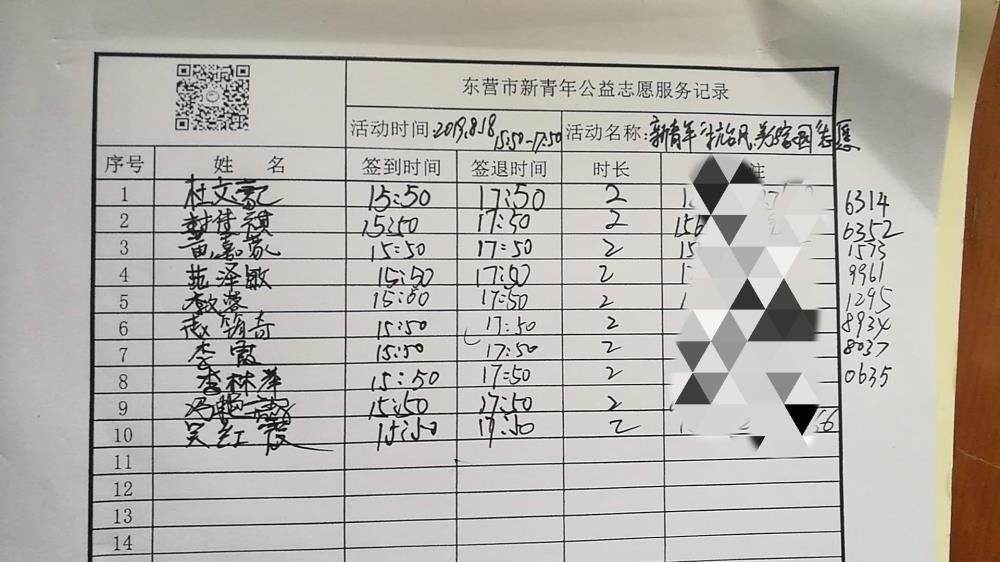 东营市新青年公益志愿服务记录
活动时间:2019.8.18 15:50-17:50 活动名称:新青年
序号 姓 名 签到时间 签退时间 时长 注
1 杜文 15:50 17:50 2 6314
2 佳祺 15:50 17:50 2 156 6352
3 苗嘉 15:50 17:50 2 15 1573
4 范泽敏 15:50 17:50 2 9961
5 15:50 17:50 2 1295
6 15:50 17:50 2 8934
7 李霞 15:50 17:50 2 8037
8 李林萍 15:50 17:50 2 0635
9 冯艳 15:50 17:50 2
10 吴红霞 15:50 17:50 2 66
11
12
13
14